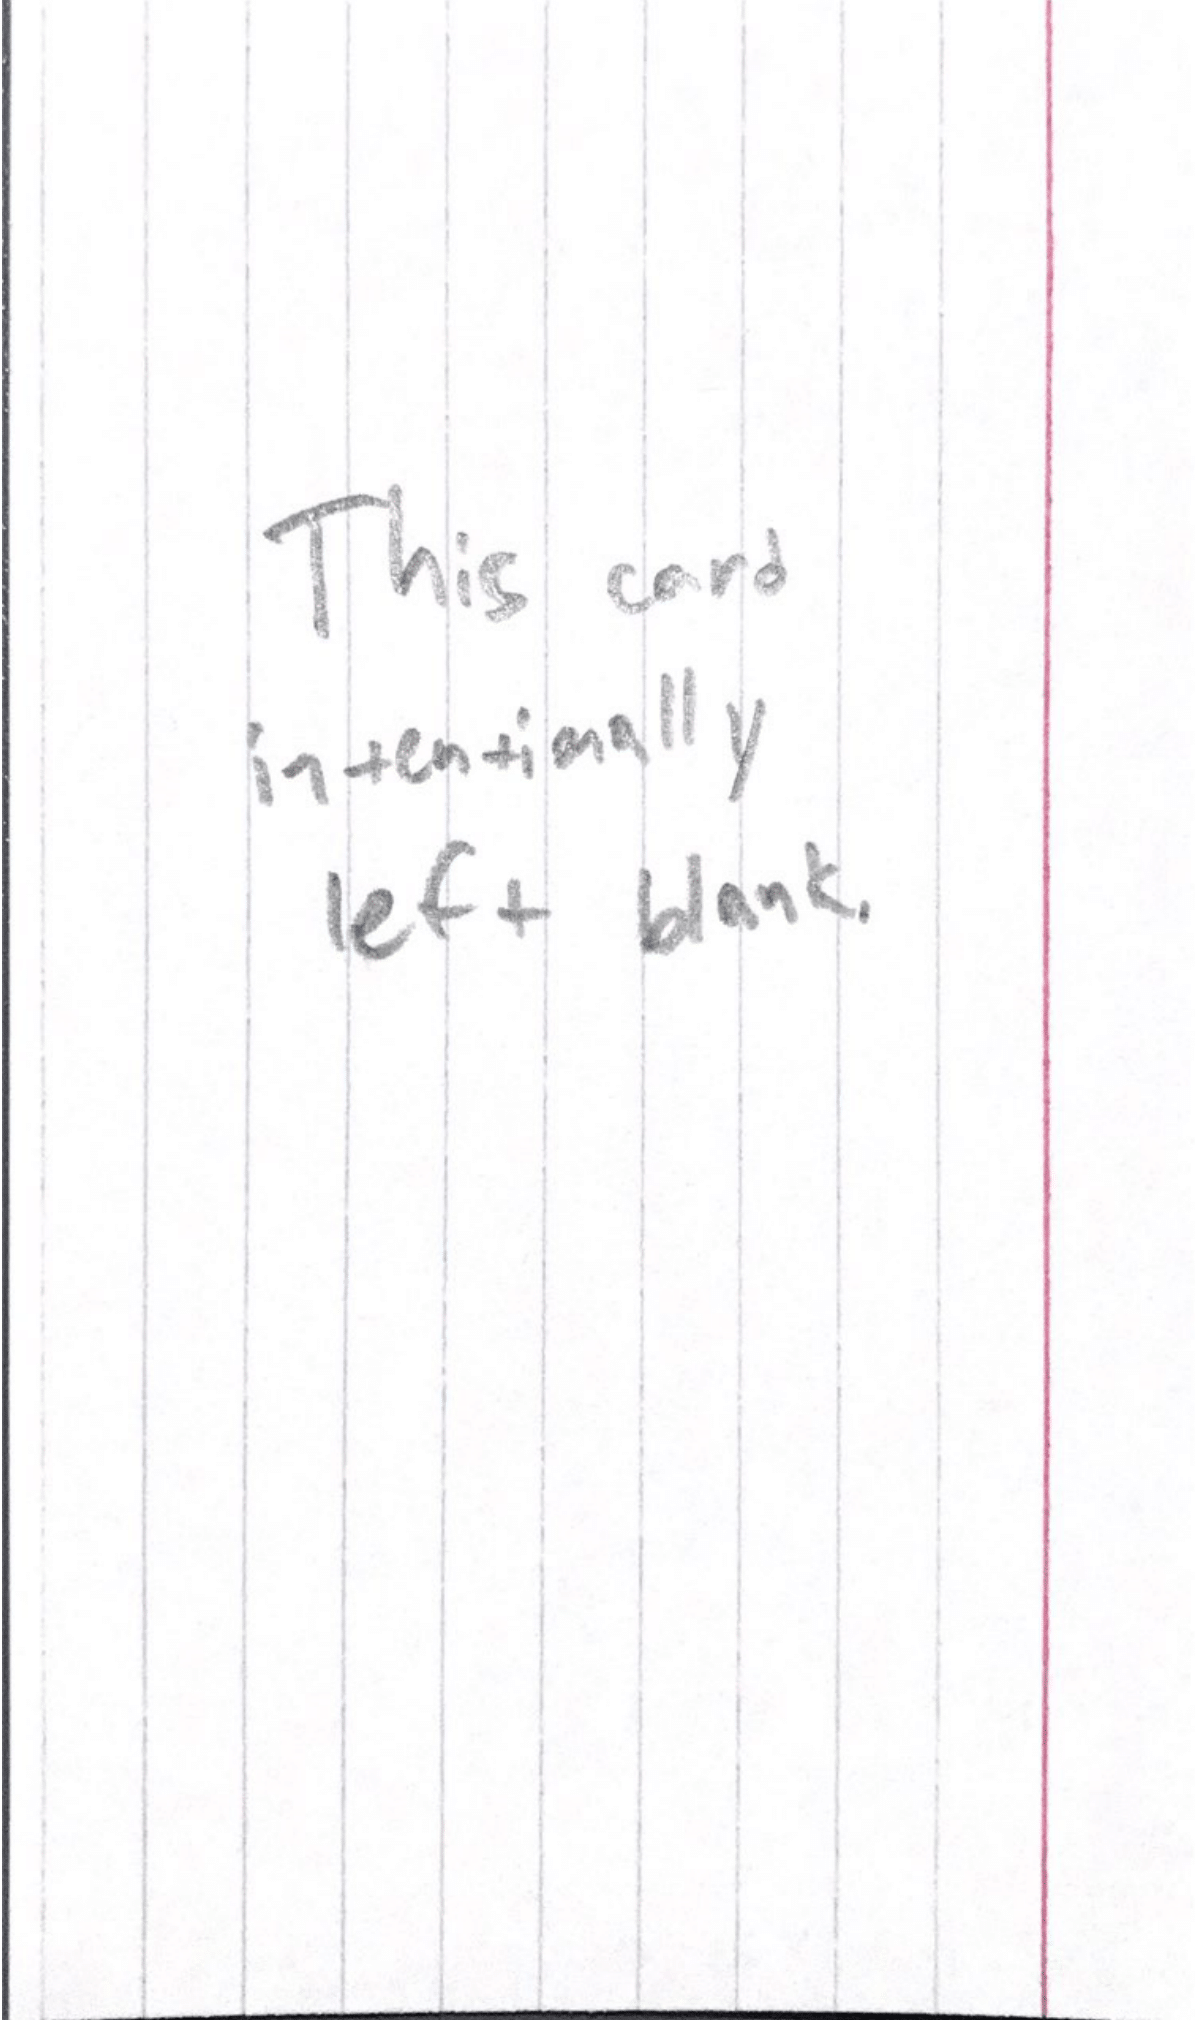 This card
intentionally
left blank.